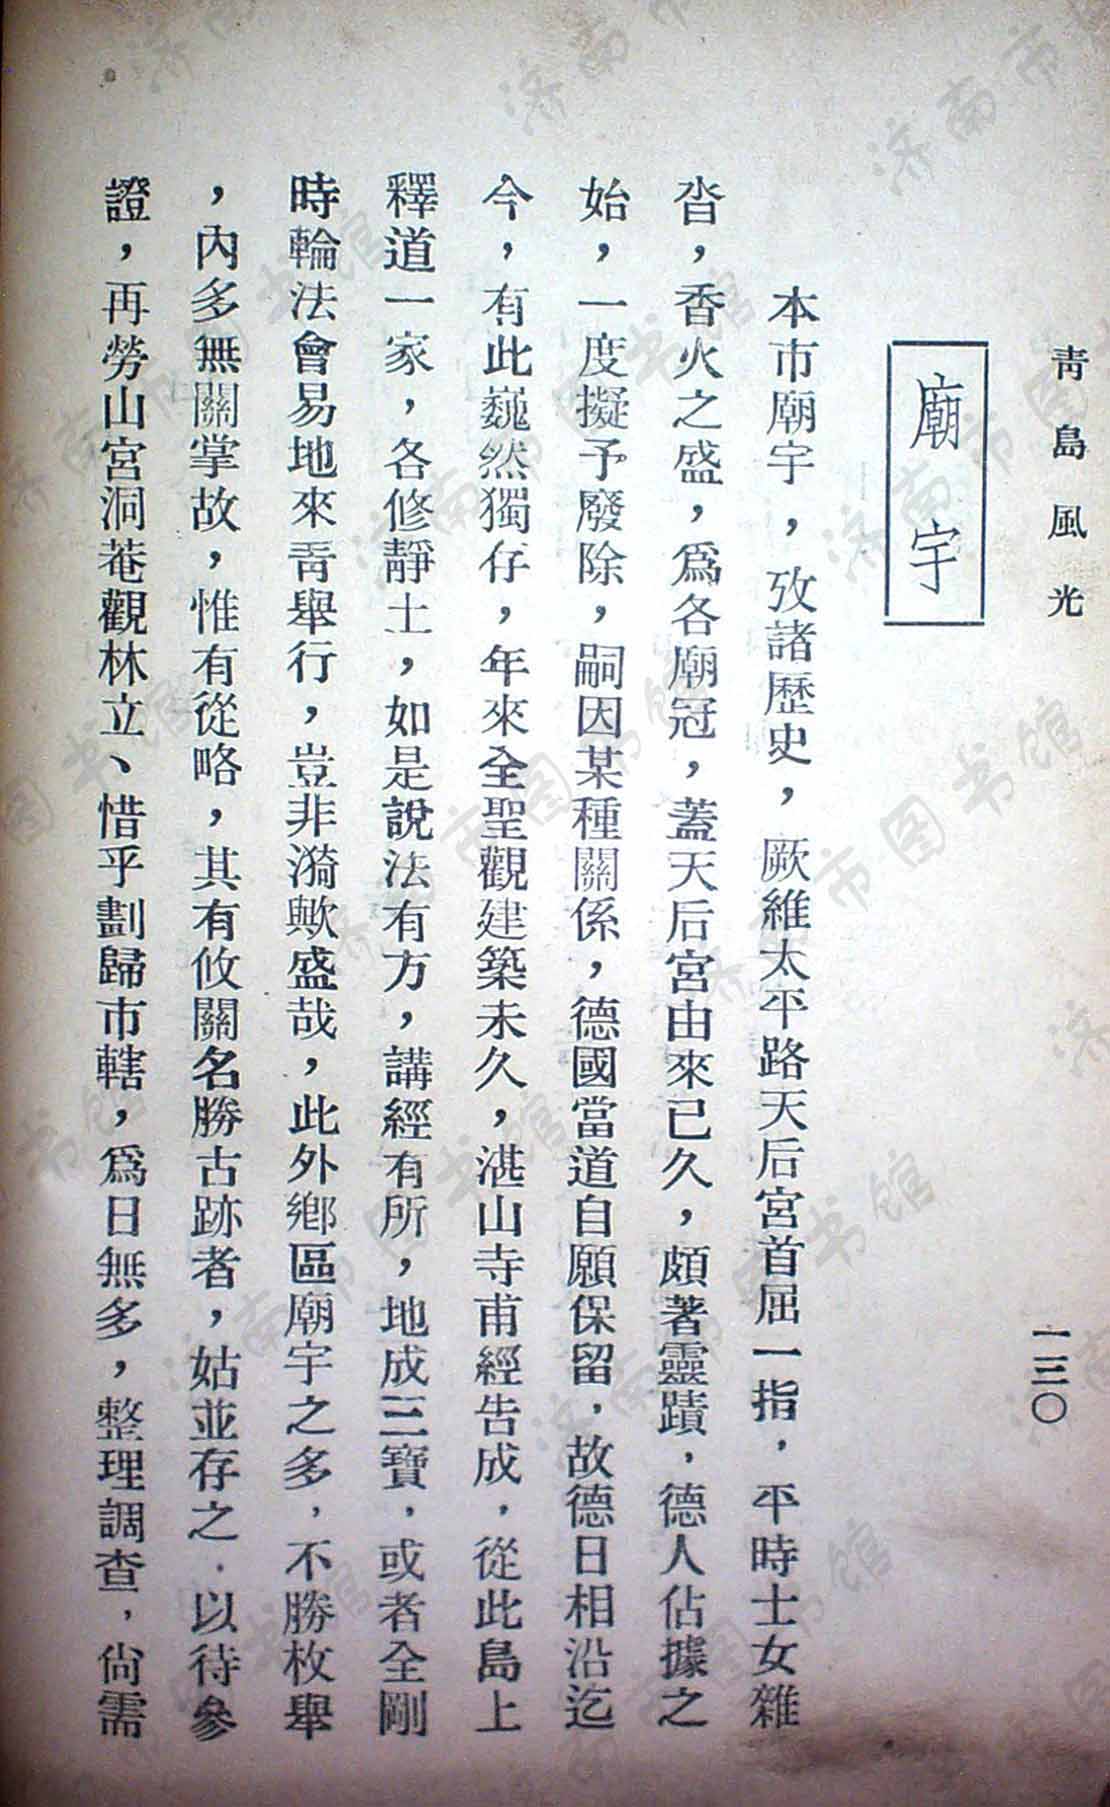 青島風光
一三〇
廟宇
本市廟宇，攷諸歷史，厥維太平路天后宮首屈一指，平時士女雜
沓，香火之盛，爲各廟冠，蓋天后宮由來已久，頗著靈蹟，德人佔據之
始，一度擬予廢除，嗣因某種關係，德國當道自願保留，故德日相沿迄
今，有此巍然獨存，年來全聖觀建築未久，湛山寺甫經告成，從此島上
釋道一家，各修靜土，如是說法有方，講經有所，地成三寶，或者全剛
時輪法會易地來靑舉行，豈非漪歟盛哉，此外鄉區廟宇之多，不勝枚舉
，內多無關掌故，惟有從略，其有攸關名勝古跡者，姑並存之，以待參
證，再勞山宮洞菴觀林立、惜乎劃歸市轄，爲日無多，整理調查，尙需
济南市图书馆